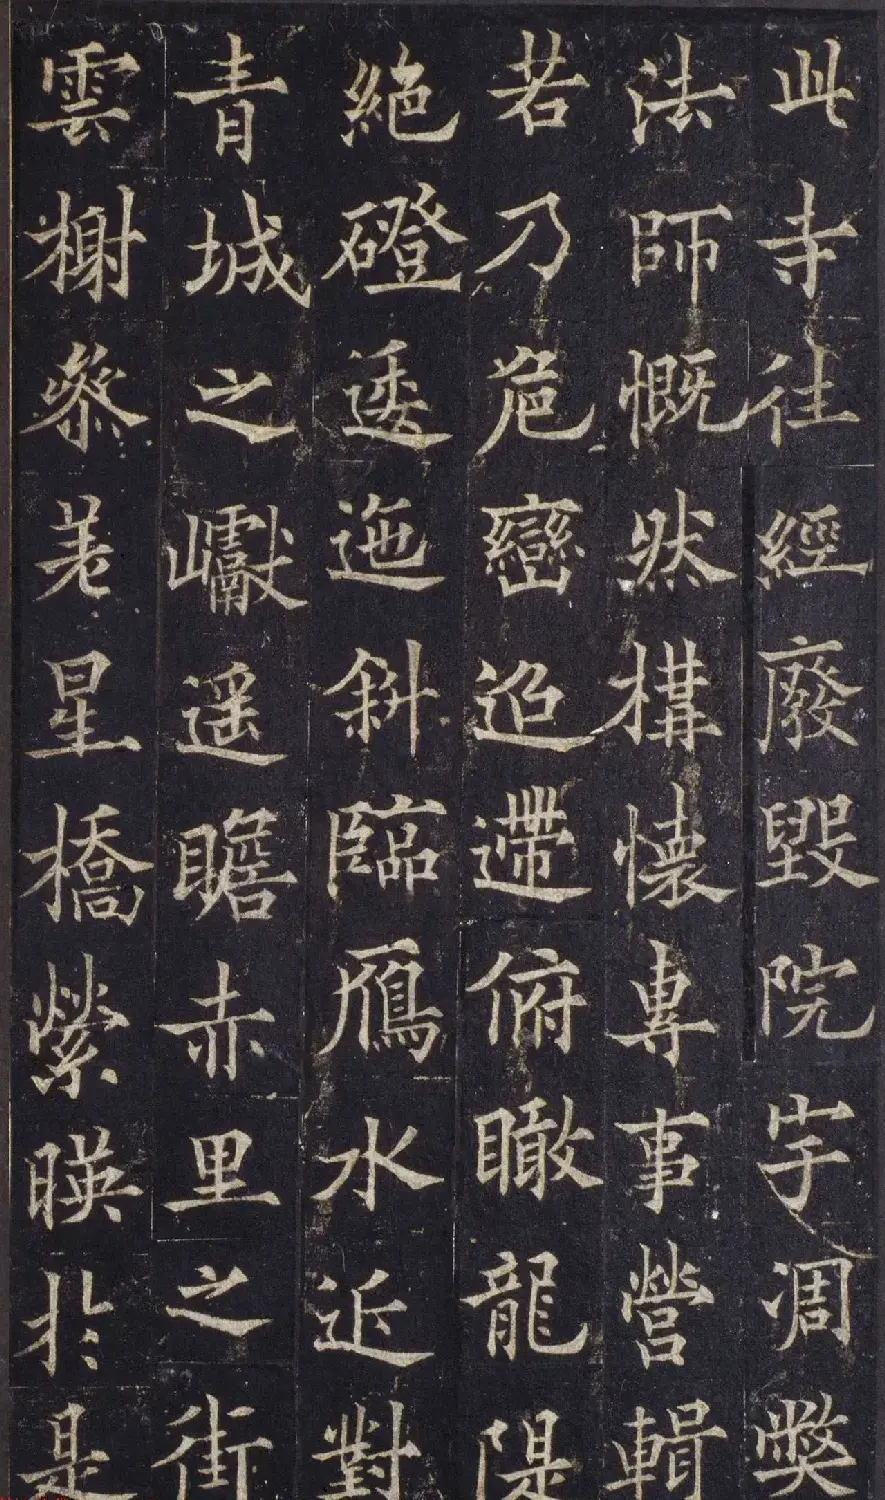 此寺往經廢毀院宇凋弊
法師慨然構懷專事營輯
若乃危巒迢遰俯瞰龍隄
絶磴逶迤斜臨鴈水近對
青城之巘遥瞻赤里之街
雲榭參差星橋縈暎於是